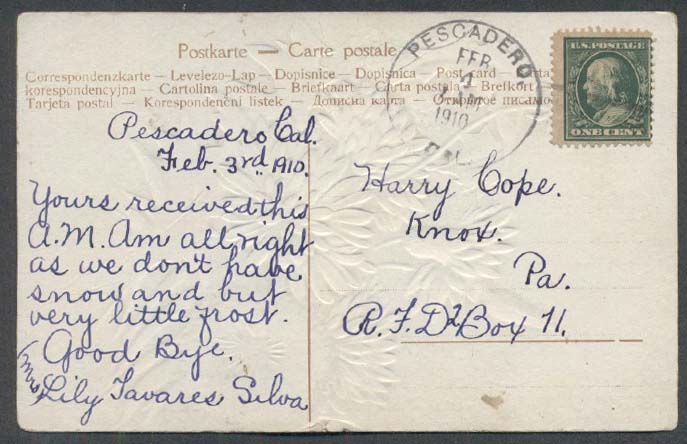 Postkarte — Carte postale
Correspondenzkarte – Levelezo-Lap – Dopisnice – Dopisnica – Post card – Carta
korespondencyjna – Cartolina postale – Briefkaart – Carta postala – Brefkort
Tarjeta postal – Korespondenční listek – Дописна карта – Открытое письмо
PESCADERO
FEB
1910
CAL.
U.S. POSTAGE
ONE CENT
Pescadero Cal.
Feb. 3rd 1910.
Yours received this
A.M. Am all right
as we don't have
snow and but
very little frost.
Good Bye.
(Mrs) Lily Tavares Silva
Harry Cope.
Knox.
Pa.
R.F.D 2 Box 71.